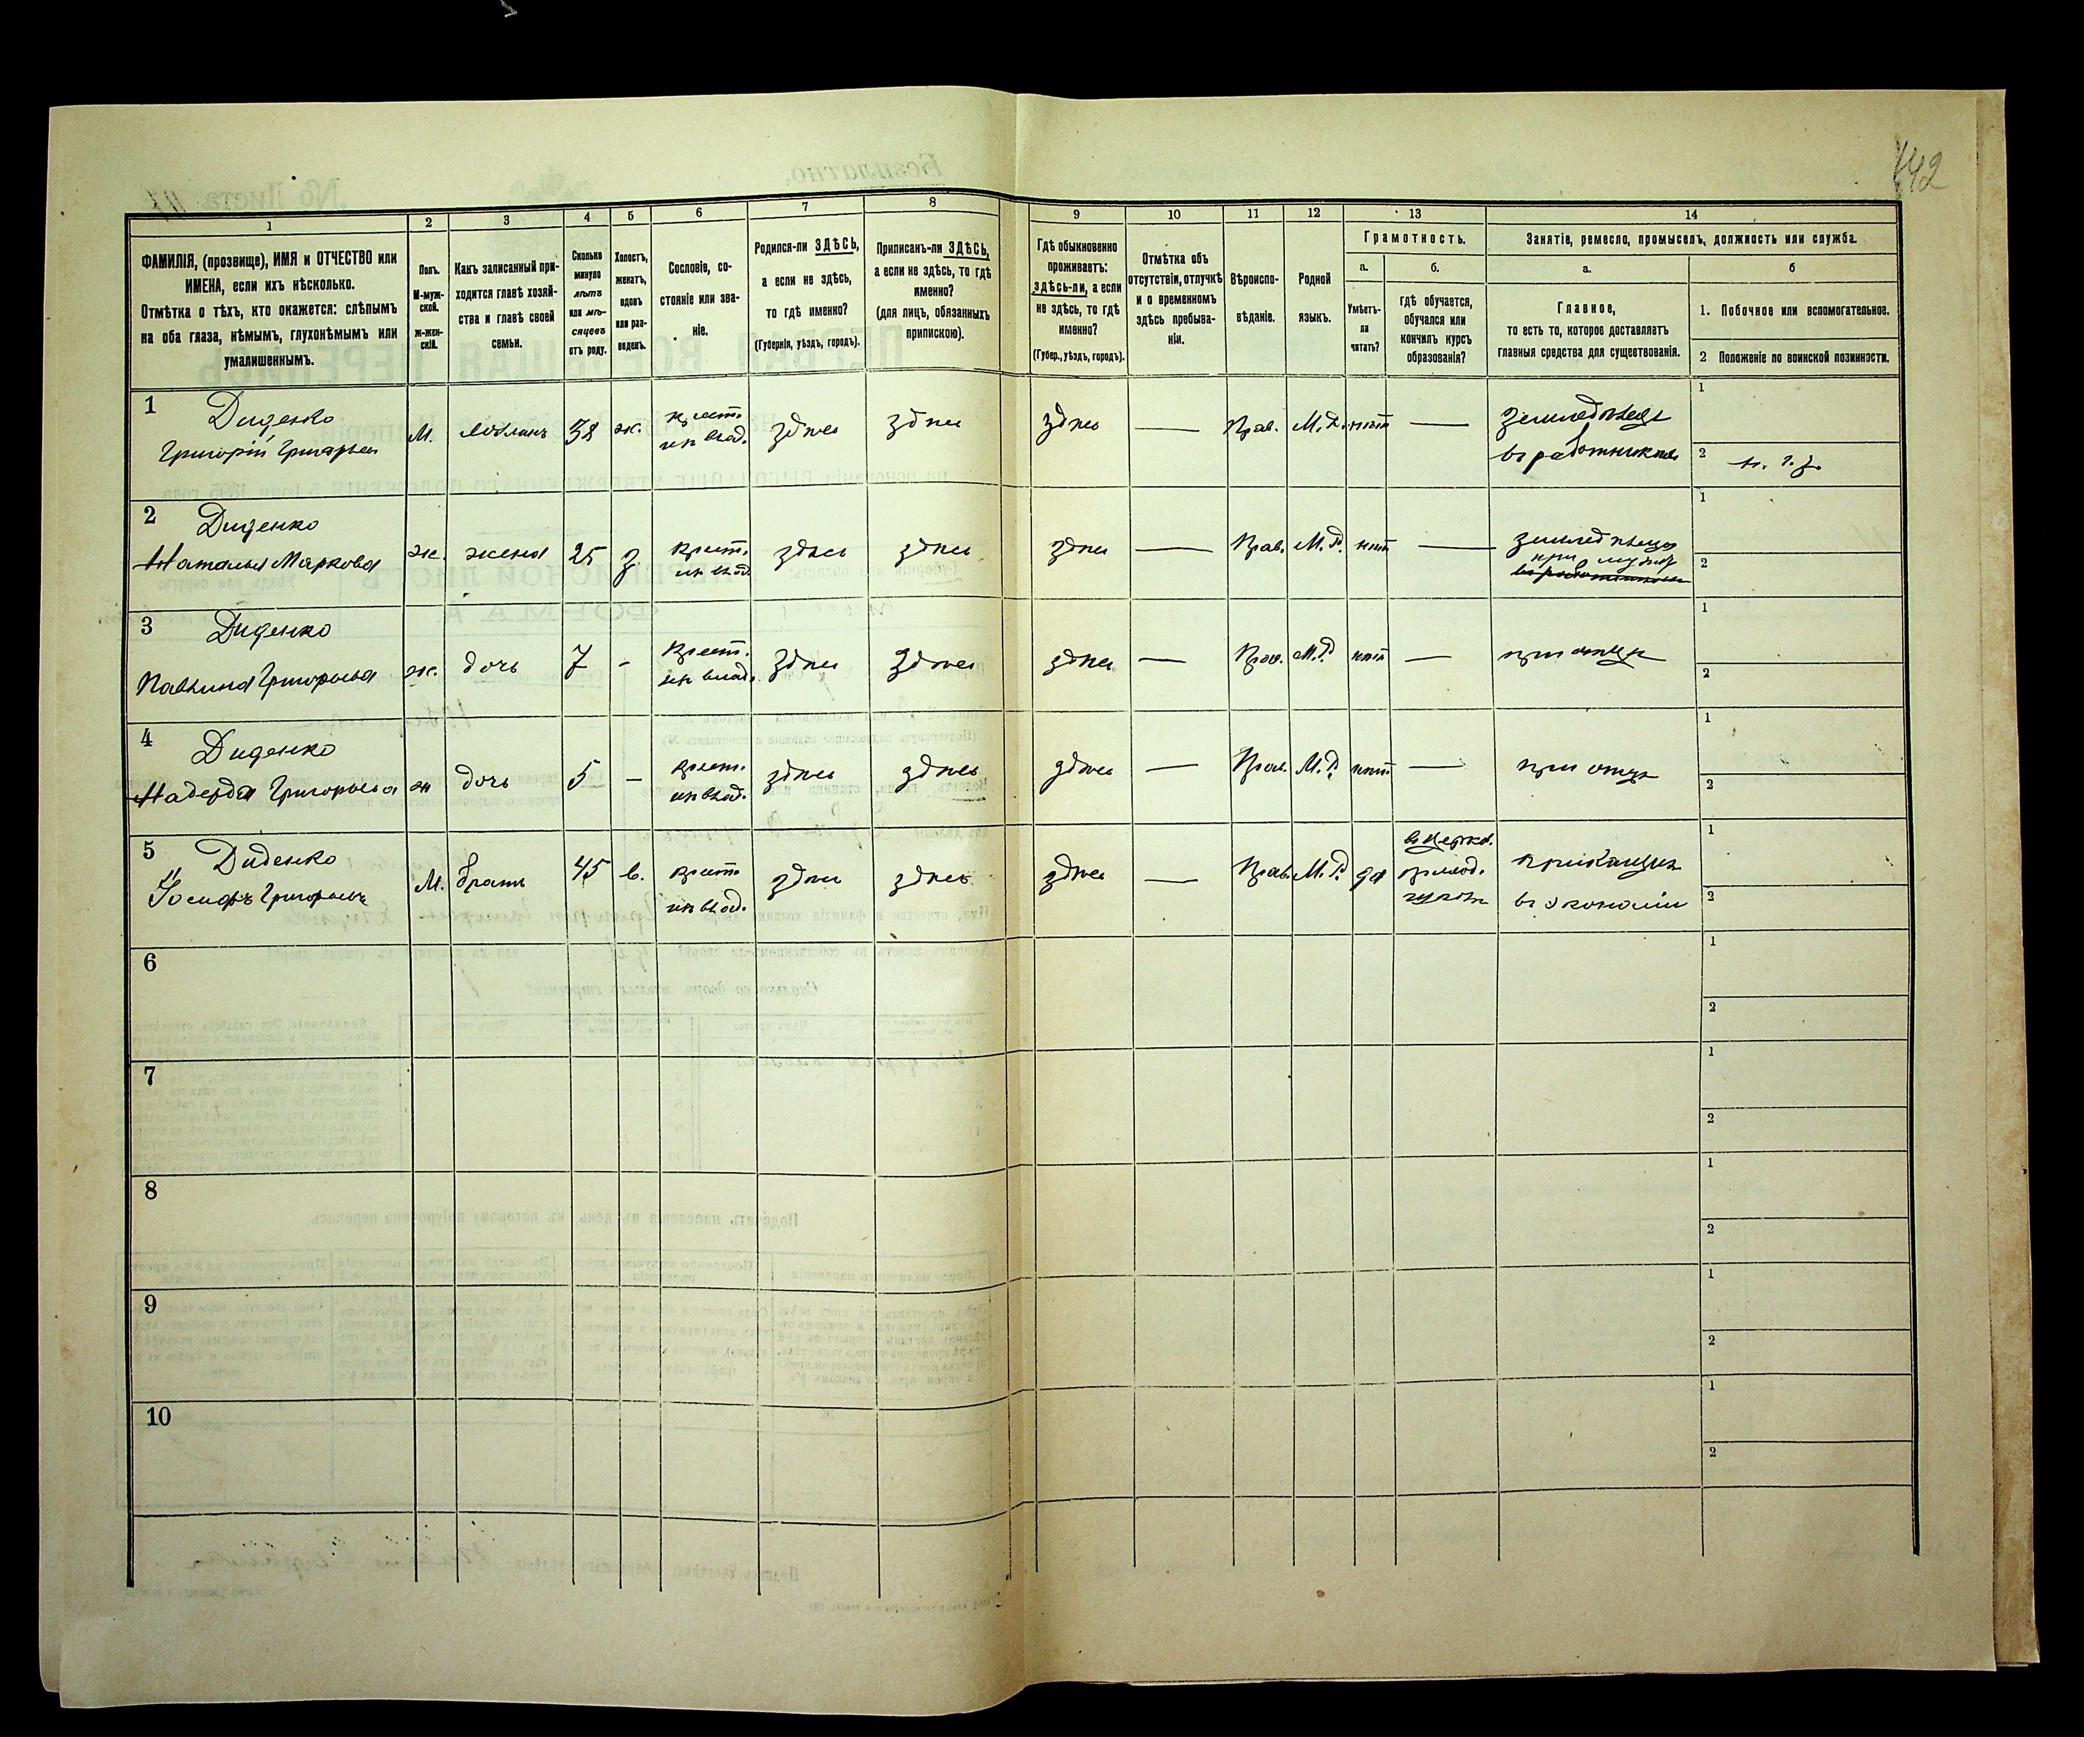 442
1 2 3 4 5 6 7 8 9 10 11 12 13 14
ФАМИЛІЯ, (прозвище), ИМЯ и ОТЧЕСТВО или
ИМЕНА, если ихъ нѣсколько.
Отмѣтка о тѣхъ, кто окажется: слѣпымъ
на оба глаза, нѣмымъ, глухонѣмымъ или
умалишеннымъ.
Полъ.
М-муж-
ской.
ж-жен-
скій.
Какъ записанный при-
ходится главѣ хозяй-
ства и главѣ своей
семьи.
Сколько
минуло
лѣтъ
или мѣ-
сяцевъ
отъ роду.
Холостъ,
женатъ,
вдовъ
или раз-
веденъ.
Сословіе, со-
стояніе или зва-
ніе.
Родился-ли ЗДѢСЬ,
а если не здѣсь,
то гдѣ именно?
(Губернія, уѣздъ, городъ).
Приписанъ-ли ЗДѢСЬ,
а если не здѣсь, то гдѣ
именно?
(для лицъ, обязанныхъ
припискою).
Гдѣ обыкновенно
проживаетъ:
здѣсь-ли, а если
не здѣсь, то гдѣ
именно?
(Губер., уѣздъ, городъ).
Отмѣтка объ
отсутствіи, отлучкѣ
и о временномъ
здѣсь пребыва-
ніи.
Вѣроиспо-
вѣданіе.
Родной
языкъ.
Грамотность.
а.
Умѣетъ-
ли
читать?
б.
гдѣ обучается,
обучался или
кончилъ курсъ
образованія?
Занятіе, ремесло, промыселъ, должность или служба.
а.
Главное,
то есть то, которое доставляетъ
главныя средства для существованія.
б
1. Побочное или вспомогательное.
2 Положеніе по воинской повинности.
1 Диденко
Григорій Григорьев
М. 38 ж. крест. здѣсь здѣсь здѣсь — Прав. М.Р. нѣтъ — земледѣлецъ
въ работникахъ
1
2
2 Диденко
Наталья Маркова
ж. жена 25 з. крест. здѣсь здѣсь здѣсь — Прав. М.Р. нѣтъ —
при мужѣ
1
2
3 Диденко
Павлина Григорьева
ж. дочь 7 - крест. здѣсь здѣсь здѣсь — Прав. М.Р. нѣтъ — при отцѣ
1
2
4 Диденко
Надежда Григорьева
ж дочь 5 — крест. здѣсь здѣсь здѣсь — Прав. М.Р. нѣтъ — при отцѣ
1
2
5 Диденко
Іосифъ Григорьевъ
М. братъ 45 в. крест. здѣсь здѣсь здѣсь — Прав. М.Р. да
въ экономіи
1
2
6
1
2
7
1
2
8
1
2
9
1
2
10
1
2